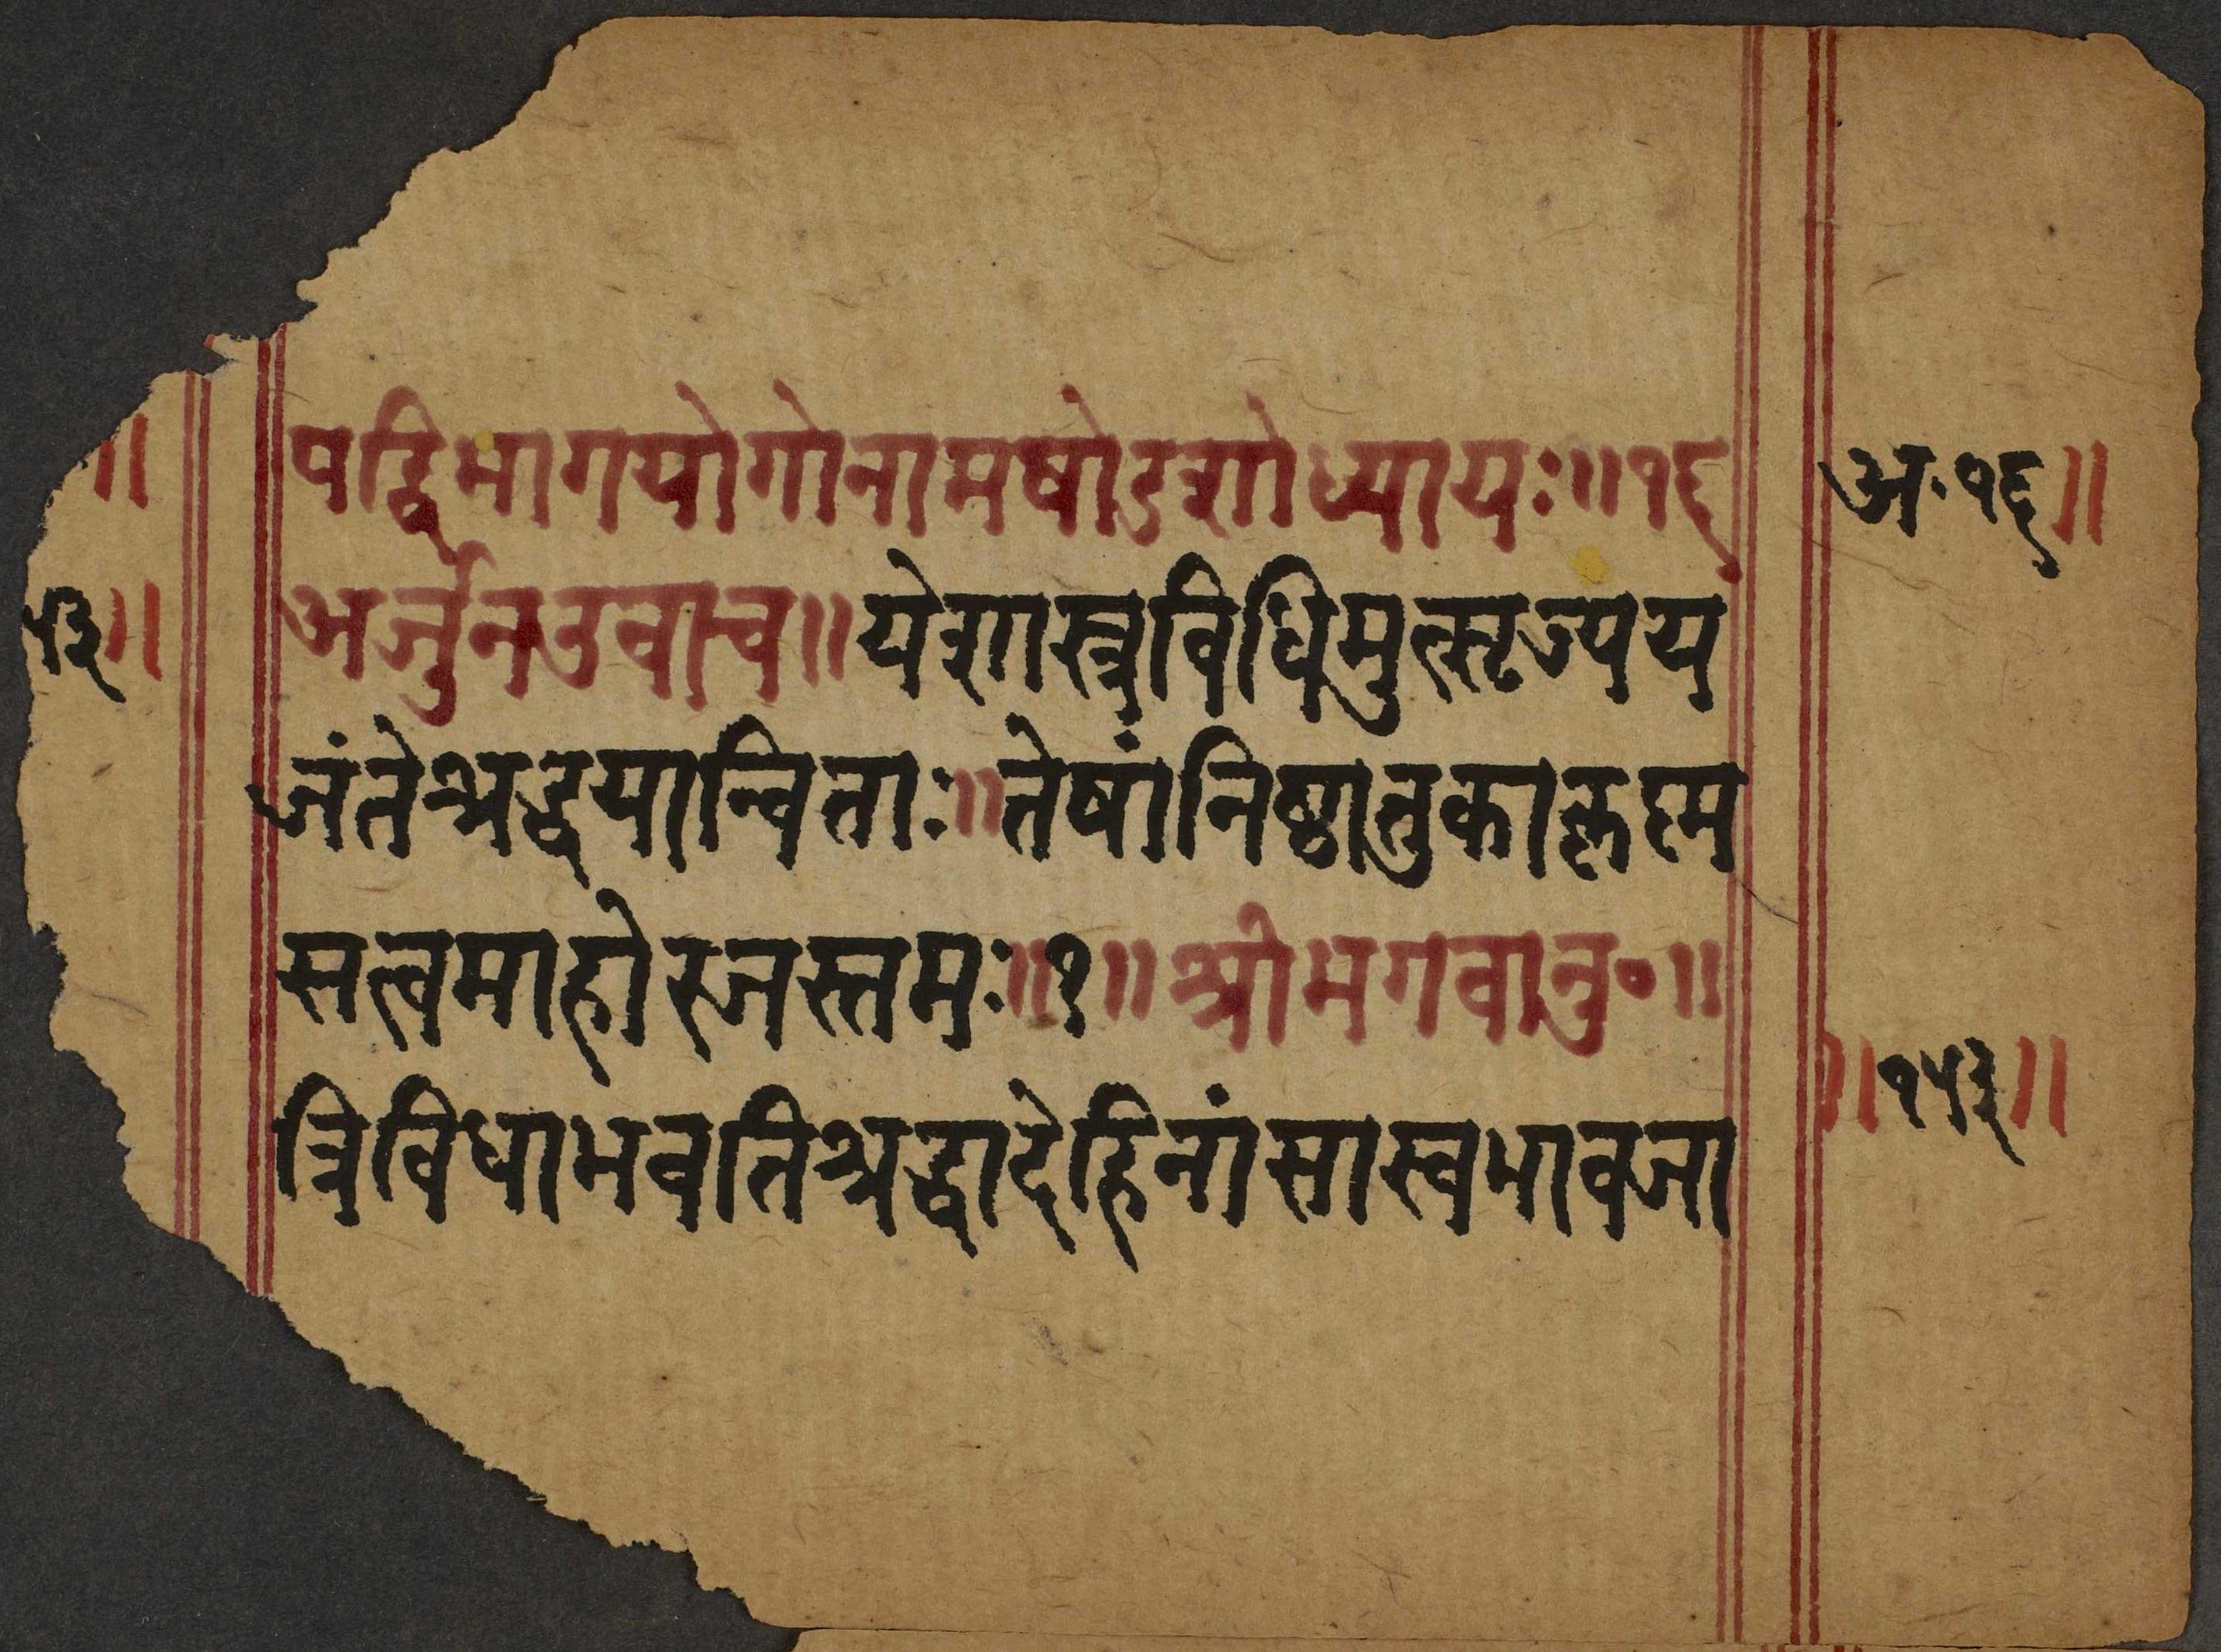 पद्विभागयोगोनामषोडशोध्यायः॥१६
अर्जुनउवाच॥येशास्त्रविधिमुत्सृज्यय
जंतेश्रद्धयान्विताः॥तेषांनिष्ठातुकाकृष्ण
सत्वमाहोरजस्तमः॥१॥श्रीभगवानु॰॥
त्रिविधाभवतिश्रद्धादेहिनांसास्वभावजा
अ॰१६॥
॥१५३॥
५३॥